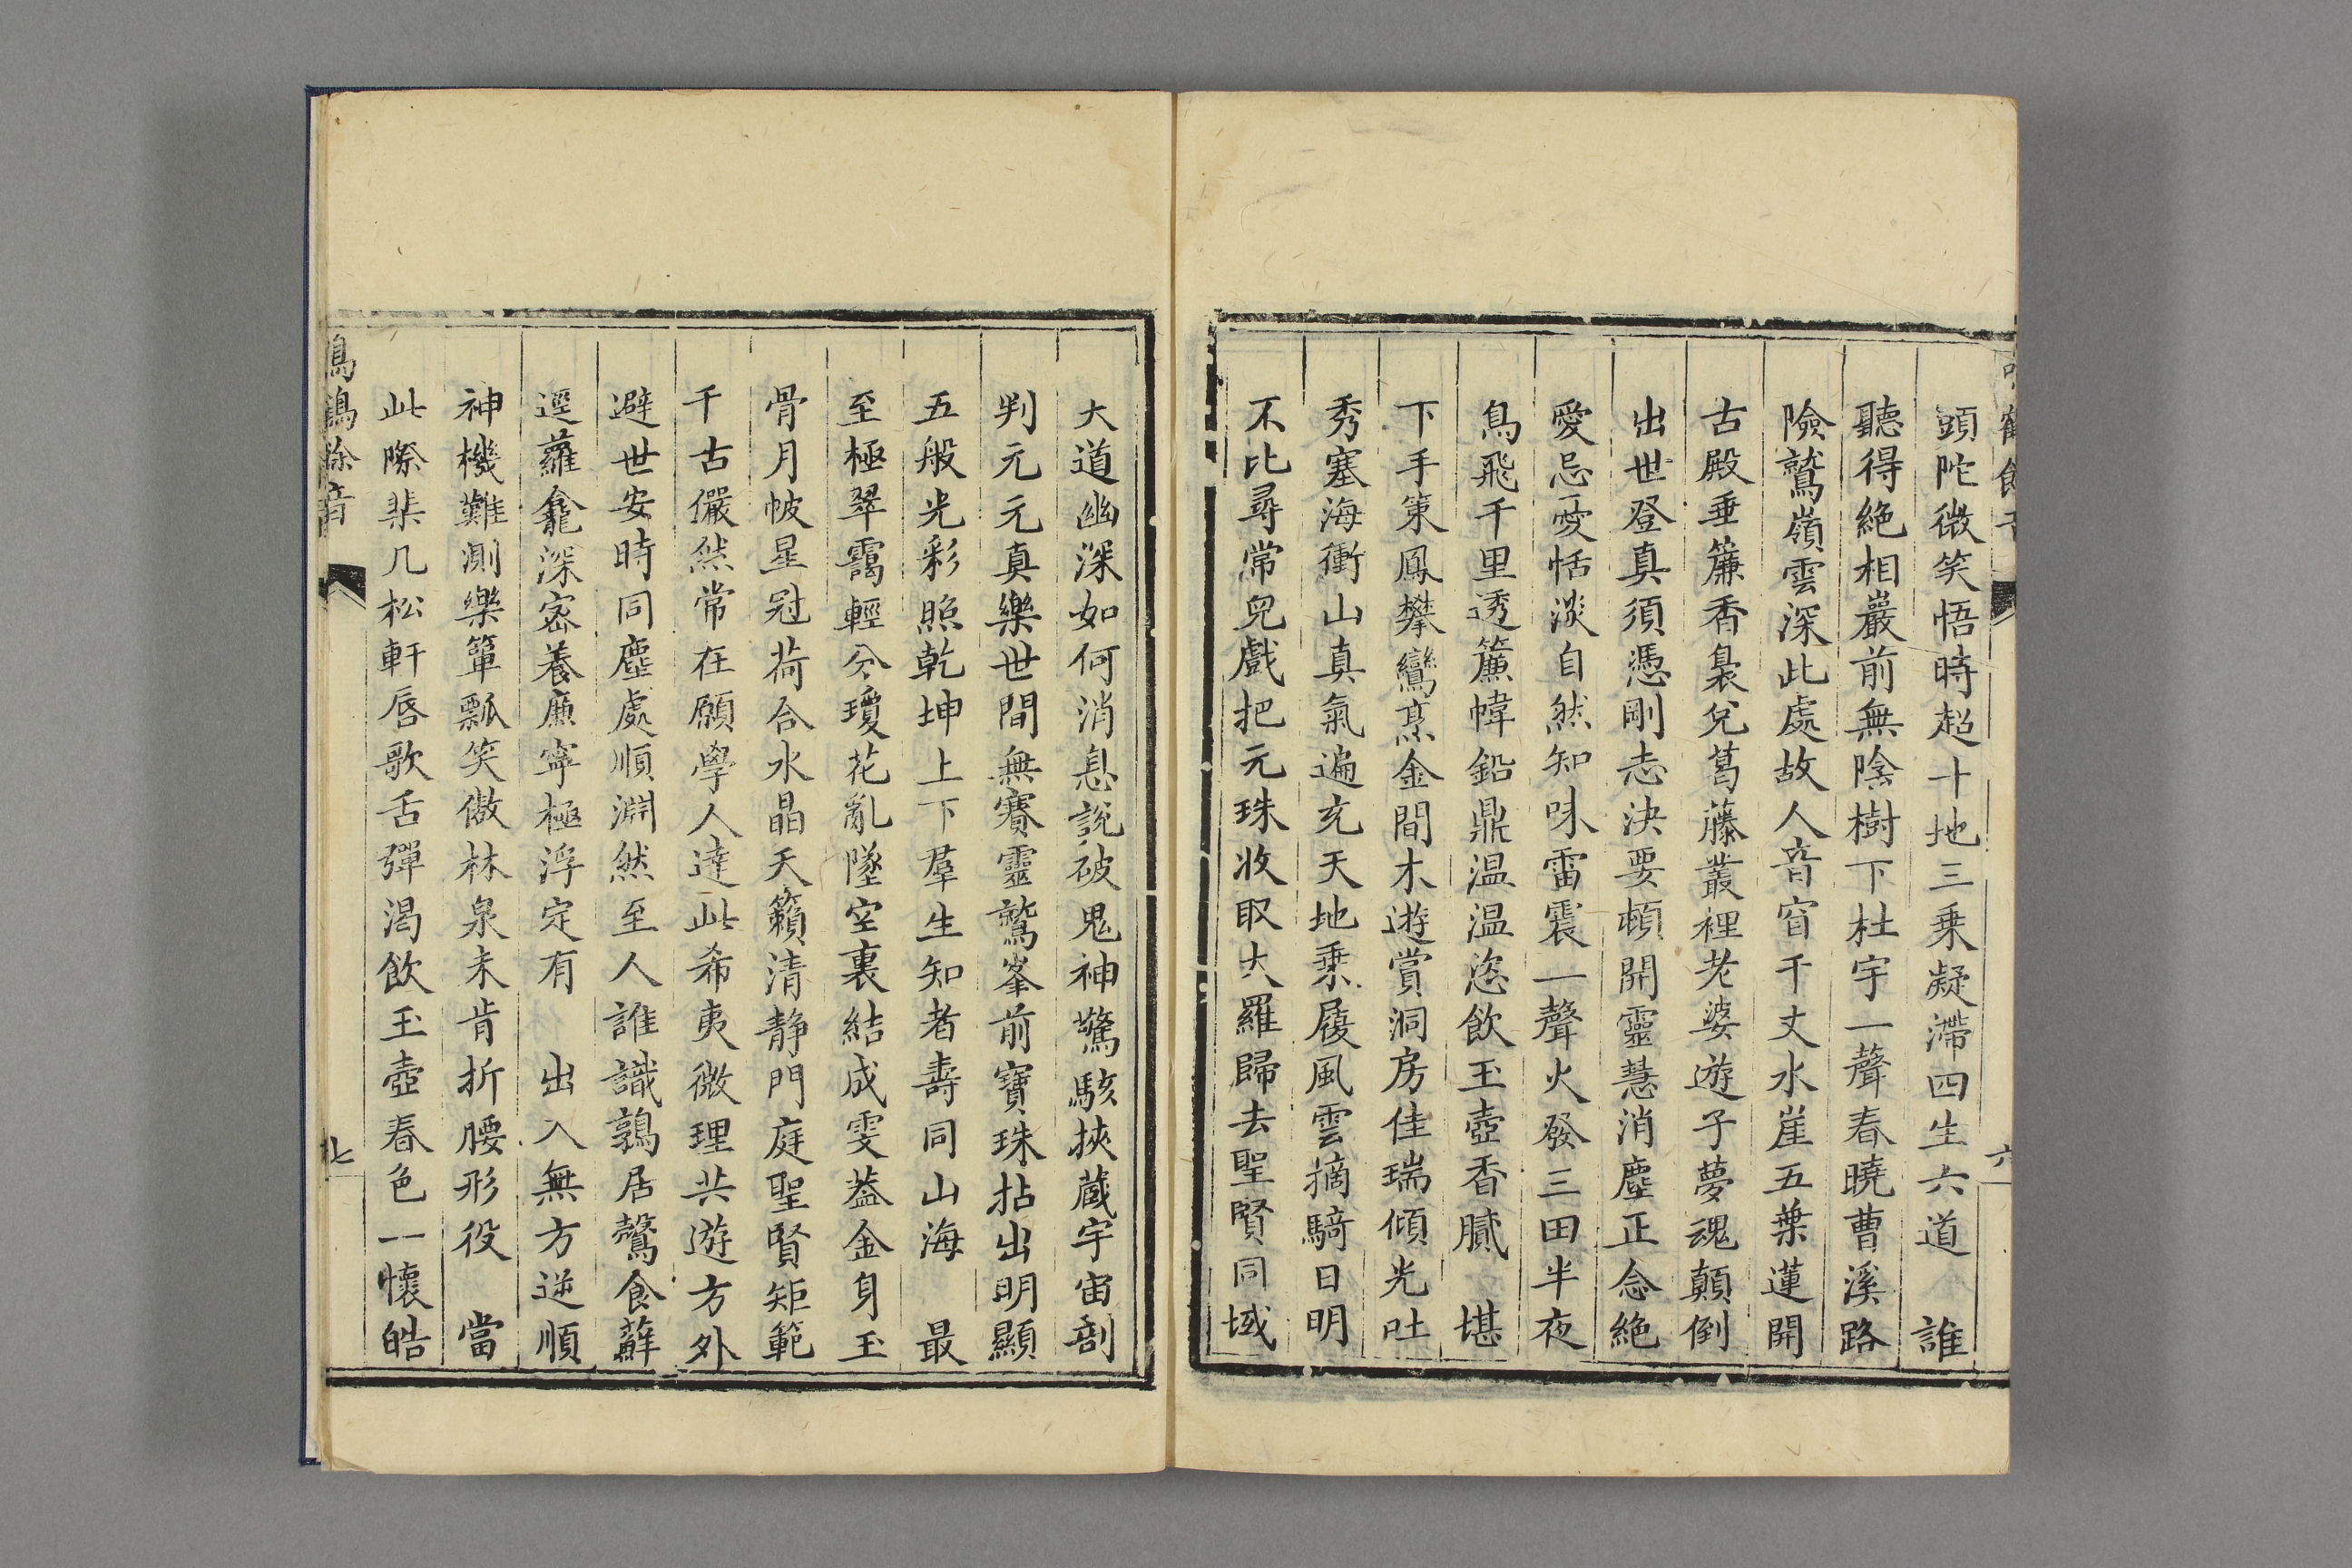 頭陀微笑悟時超十地三乗凝滯四生六道　誰
聽得絶相巖前無陰樹下杜宇一聲春曉曹溪路
險鷲嶺雲深此處故人音窅千丈水崖五葉蓮開
古殿垂簾香裊兊葛藤叢裡老婆遊子夢魂顛倒
出世登真須憑剛志決要頓開靈慧消塵正念絶
愛忌愛恬淡自然知味雷震一聲火發三田半夜
鳥飛千里透簾幃鉛鼎温温恣飲玉壺香膩　堪
下手策鳳攀鸞烹金間木遊賞洞房佳瑞傾光吐
秀塞海衝山真氣遍充天地乗履風雲摘騎日明
不比尋常兒戲把元珠收取大羅歸去聖賢同域
大道幽深如何消息說破鬼神驚駭挾蔵宇宙剖
判元元真樂世間無賽靈鷲峯前寶珠拈出明顯
五般光彩照乾坤上下羣生知者壽同山海　最
至極翠靄輕分瓊花亂墜空裏結成雯蓋金身玉
骨月帔星冠荷合水晶天籟清静門庭聖賢矩範
千古儼然常在願學人達此希夷微理共遊方外
避世安時同塵處順淵然至人誰識鶉居鷇食蘚
逕蘿龕深宻養㢘寧極浮定有　出入無方逆順
神機難測樂簞瓢笑傲林泉未肯折腰形役　當
此際棐几松軒唇歌舌彈渴飲玉壺春色一懷皓
鳥鶴餘音
七
六